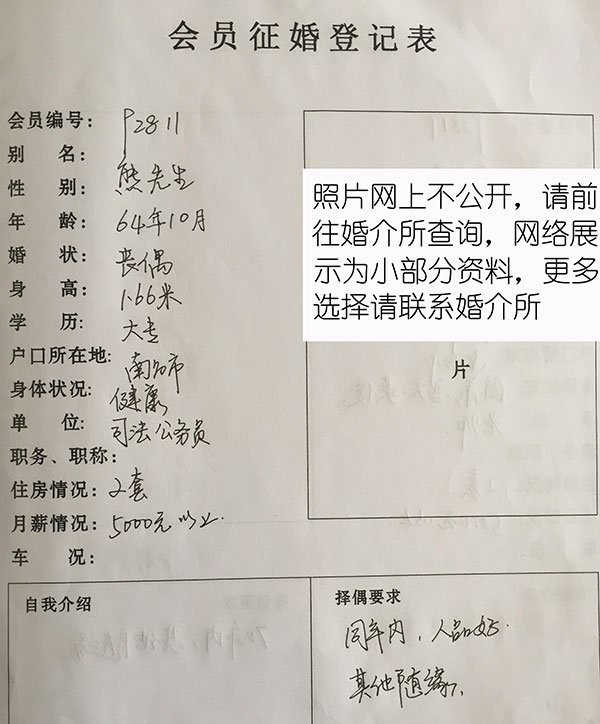 会员征婚登记表
会员编号：P2811
别 名：
性 别：熊先生
年 龄：64年10月
婚 状：丧偶
身 高：1.66米
学 历：大专
户口所在地：南宁市
身体状况：健康
单 位：司法公务员
职务、职称：
住房情况：2套
月薪情况：5000元以上.
车 况：
照片网上不公开，请前
往婚介所查询，网络展
示为小部分资料，更多
选择请联系婚介所
片
自我介绍
择偶要求
同年内，人品好.
其他随缘.